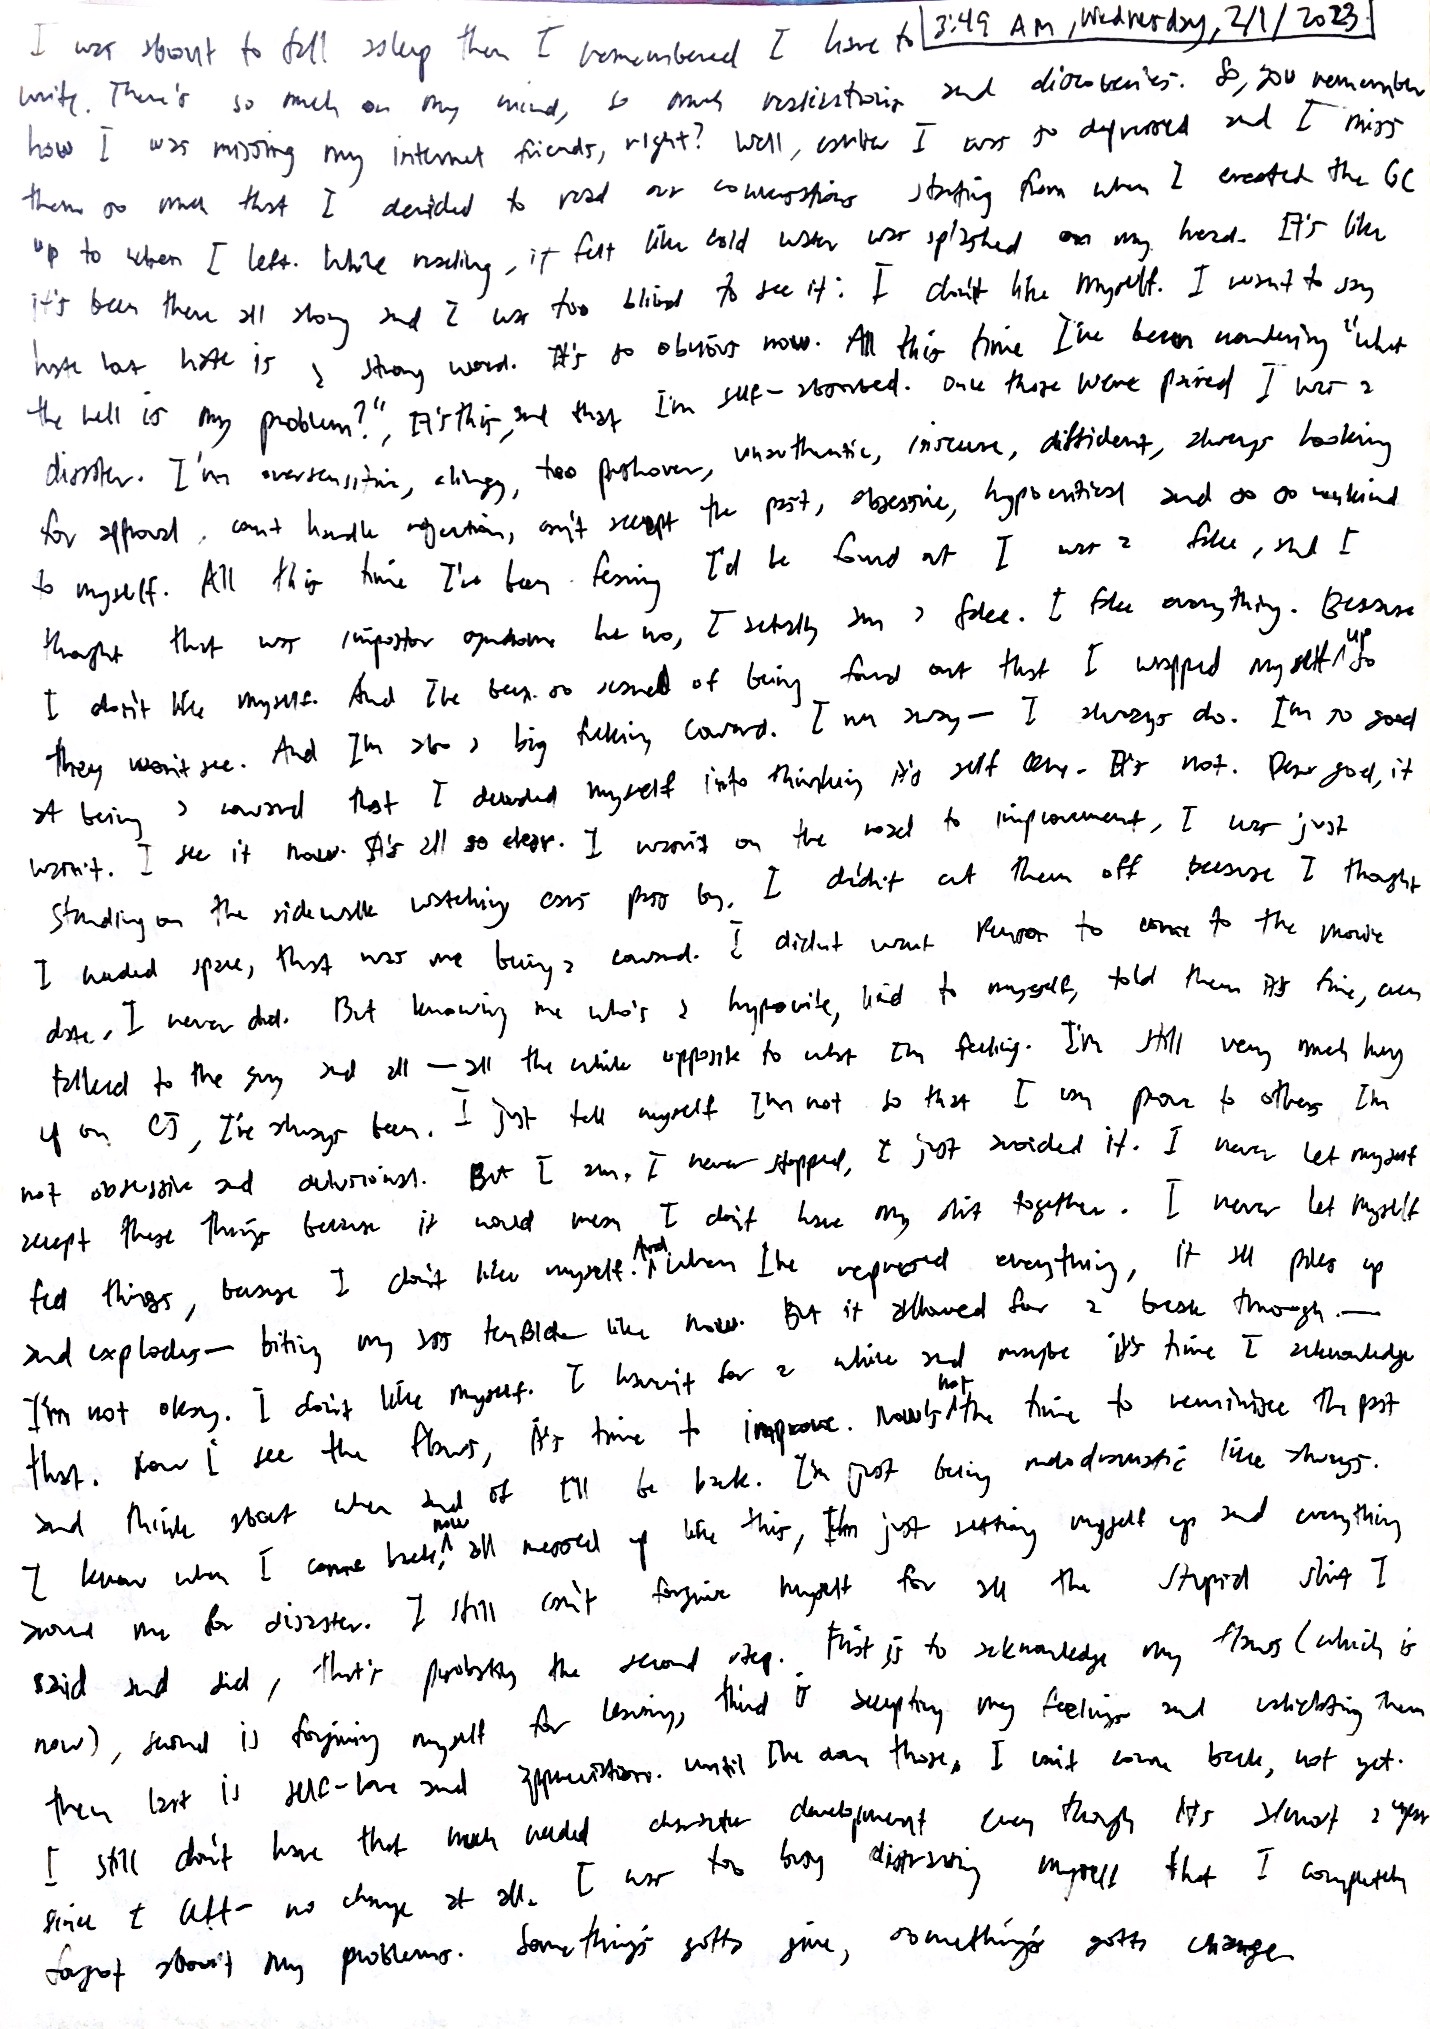 3:49 AM, Wednesday, 2/1/2023
I was about to fall asleep then I remembered I have to
write. There's so much on my mind, so much realizations and discoveries. So, you remember
how I was missing my internet friends, right? Well, earlier I was so depressed and I miss
them so much that I decided to read our conversations starting from when I created the GC
up to when I left. While reading, it felt like cold water was splashed on my head. It's like
it's been there all along and I was too blind to see it: I don't like myself. I want to say
hate but hate is a strong word. It's so obvious now. All this time I've been wondering "what
the hell is my problem?", It's this, and that I'm self-absorbed. Once those were paired I was a
disaster. I'm oversensitive, clingy, too pushover, unauthentic, insecure, diffident, always looking
for approval, can't handle rejection, can't accept the past, obsessive, hypocritical and so so unkind
to myself. All this time I've been fearing I'd be found out I was a fake, and I
thought that was impostor syndrome but no, I actually am a fake. I fake everything. Because
I don't like myself. And I've been so scared of being found out that I wrapped myself up so
they won't see. And I'm also a big fucking coward. I run away — I always do. I'm so good
at being a coward that I deluded myself into thinking it's self care. It's not. Dear god, it
wasn't. I see it now. It's all so clear. I wasn't on the road to improvement, I was just
standing on the sidewalk watching cars pass by. I didn't cut them off because I thought
I needed space, that was me being a coward. I didn't want to come to the movie
date, I never did. But knowing me who's a hypocrite, lied to myself, told them it's fine, even
talked to the guy and all — all the while opposite to what I'm feeling. I'm still very much hung
up on CJ, I've always been. I just tell myself I'm not so that I can prove to others I'm
not obsessive and delusional. But I am. I never stopped, I just avoided it. I never let myself
accept these things because it would mean I don't have my shit together. I never let myself
feel things, because I don't like myself. And when I've repressed everything, it all piles up
and explodes — biting my ass tenfold like now. But it allowed for a break through —
I'm not okay. I don't like myself. I haven't for a while and maybe it's time I acknowledge
that. Now I see the flaws, it's time to improve. Now's not the time to reminisce the past
and think about when and if I'll be back. I'm just being melodramatic like always.
I know when I come back now, all messed up like this, I'm just setting myself up and everything
around me for disaster. I still can't forgive myself for all the stupid shit I
said and did, that's probably the second step. First is to acknowledge my flaws (which is
now), second is forgiving myself for leaving, third is accepting my feelings and validating them
then last is self-love and appreciation. Until I've done those, I won't come back, not yet.
I still don't have that much needed character development even though it's almost a year
since I left — no change at all. I was too busy distracting myself that I completely
forgot about my problems. Something's gotta give, something's gotta change